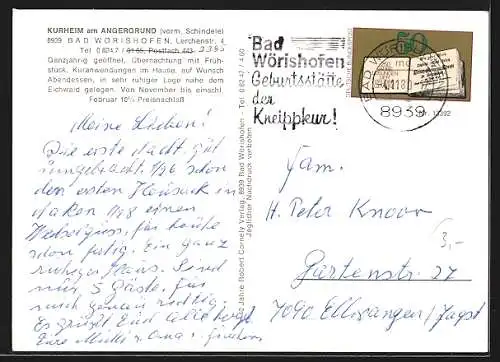 KURHEIM am ANGERGRUND (vorm. Schindele)
8939 BAD WÖRISHOFEN, Lerchenstr. 4
Tel. 08247 / 61 65, Postfach 443
Ganzjährig geöffnet, Übernachtung mit Früh-
stück, Kuranwendungen im Hause, auf Wunsch
Abendessen, in sehr ruhiger Lage nahe dem
Eichwald gelegen. Von November bis einschl.
Februar 10% Preisnachlaß
Meine Lieben!
Die erste Nacht gut
schon
den ersten Heusack im
einen
für heute
schon fertig. Ein ganz
ruhiges Haus. Sind
nur 5 Gäste, für
mich genau richtig.
Es grüßt Euch alle herzl.
Eure Mutti u. Oma
Jahre Robert Cornely Verlag, 8939 Bad Wörishofen - Tel. 0 82 47 / 4 60
Jeglicher Nachdruck verboten
Bad
Wörishofen
Geburtsstätte
der
Kneippkur!
50
BAD WÖRISHOFEN
8939
Fam.
H. Peter Knoor
Gartenstr. 27
7090 Ellwangen/Jagst
3,-